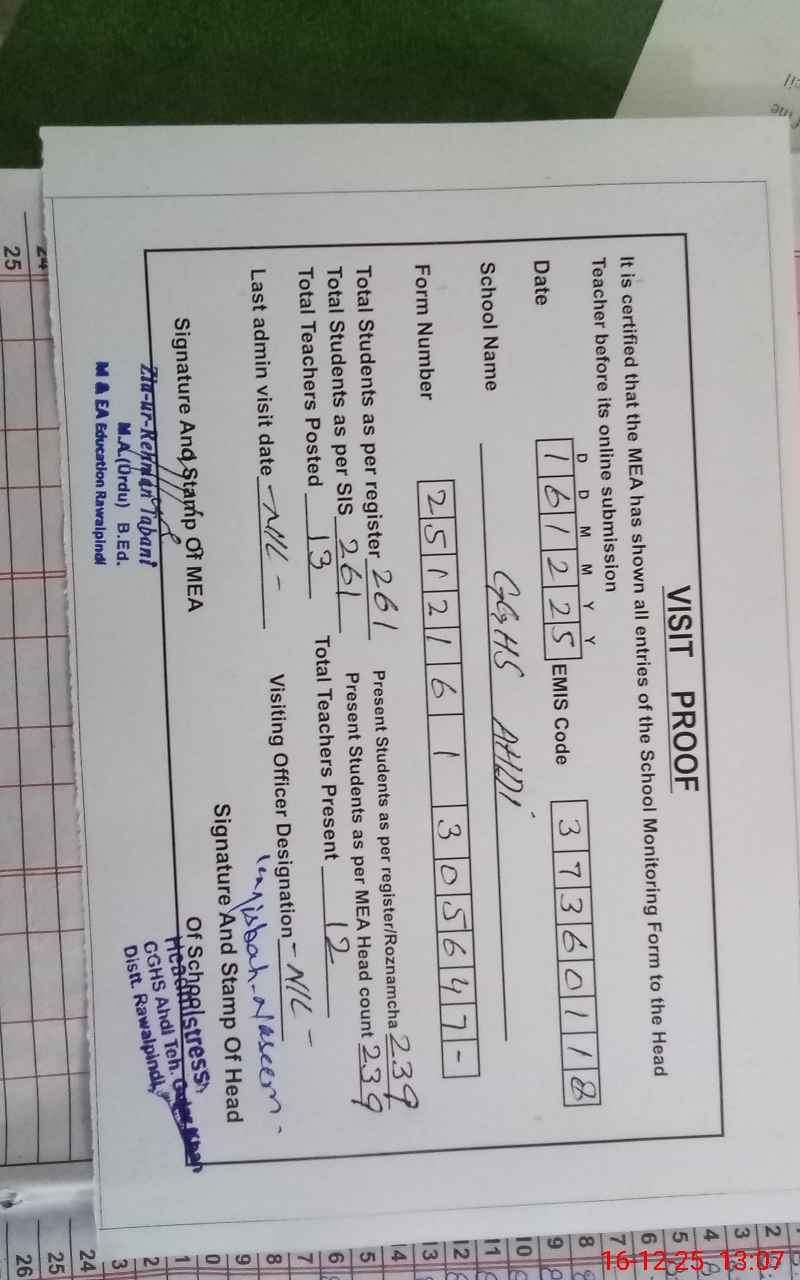 VISIT PROOF
It is certified that the MEA has shown all entries of the School Monitoring Form to the Head
Teacher before its online submission
D D M M Y Y
Date 1 6 1 2 2 5 EMIS Code 3 7 3 6 0 1 1 8
School Name GGHS AHDI
Form Number 2 5 1 2 1 6 1 3 0 5 6 4 7 -
Total Students as per register 261 Present Students as per register/Roznamcha 239
Total Students as per SIS 261 Present Students as per MEA Head count 239
Total Teachers Posted 13 Total Teachers Present 12
Last admin visit date -NIL- Visiting Officer Designation -NIL-
Signature And Stamp Of MEA
Signature And Stamp Of Head
Of School
Zia-ur-Rehman Tabani
M.A.(Urdu) B.Ed.
M & EA Education Rawalpindi
Headmistress
GGHS Ahdi Teh. Gujar Khan
Distt. Rawalpindi
25
24
25
26
24
3
2
1
0
9
8
7
6
5
4
13
12
11
10
9
8
7
6
5
4
3
2
16-12-25 13:07